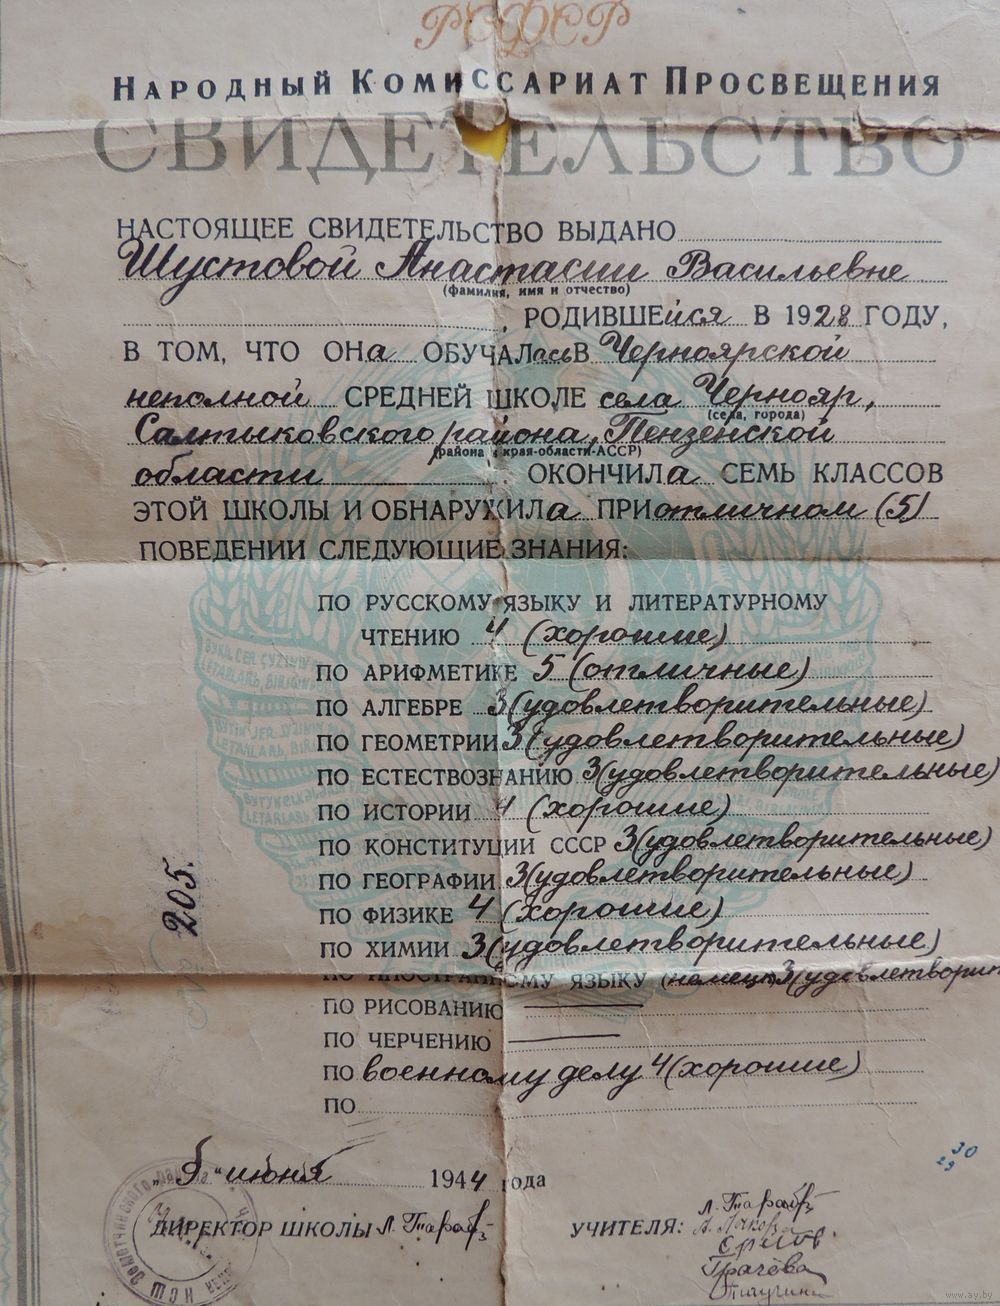 РСФСР
НАРОДНЫЙ КОМИССАРИАТ ПРОСВЕЩЕНИЯ
СВИДЕТЕЛЬСТВО
НАСТОЯЩЕЕ СВИДЕТЕЛЬСТВО ВЫДАНО
Шустовой Анастасии Васильевне
(фамилия, имя и отчество)
, РОДИВШЕЙСЯ В 1928 ГОДУ,
В ТОМ, ЧТО ОНа ОБУЧАЛась В Черноярской
неполной СРЕДНЕЙ ШКОЛЕ села Чернояр,
(села, города)
Салтыковского района, Пензенской
(района, края-области-АССР)
области ОКОНЧИЛа СЕМЬ КЛАССОВ
ЭТОЙ ШКОЛЫ И ОБНАРУЖИЛа ПРИ отличном (5)
ПОВЕДЕНИИ СЛЕДУЮЩИЕ ЗНАНИЯ:
ПО РУССКОМУ ЯЗЫКУ И ЛИТЕРАТУРНОМУ
ЧТЕНИЮ 4 (хорошие)
ПО АРИФМЕТИКЕ 5 (отличные)
ПО АЛГЕБРЕ 3 (удовлетворительные)
ПО ГЕОМЕТРИИ 3 (удовлетворительные)
ПО ЕСТЕСТВОЗНАНИЮ 3 (удовлетворительные)
ПО ИСТОРИИ 4 (хорошие)
ПО КОНСТИТУЦИИ СССР 3 (удовлетворительные)
ПО ГЕОГРАФИИ 3 (удовлетворительные)
ПО ФИЗИКЕ 4 (хорошие)
ПО ХИМИИ 3 (удовлетворительные)
ПО ИНОСТРАННОМУ ЯЗЫКУ (немецк) 3 (удовлетворит
ПО РИСОВАНИЮ —
ПО ЧЕРЧЕНИЮ —
ПО военному делу 4 (хорошие)
ПО
№ 205.
"5" июня 1944 года
ДИРЕКТОР ШКОЛЫ
УЧИТЕЛЯ:
Грачёва
30
29
www.ay.by